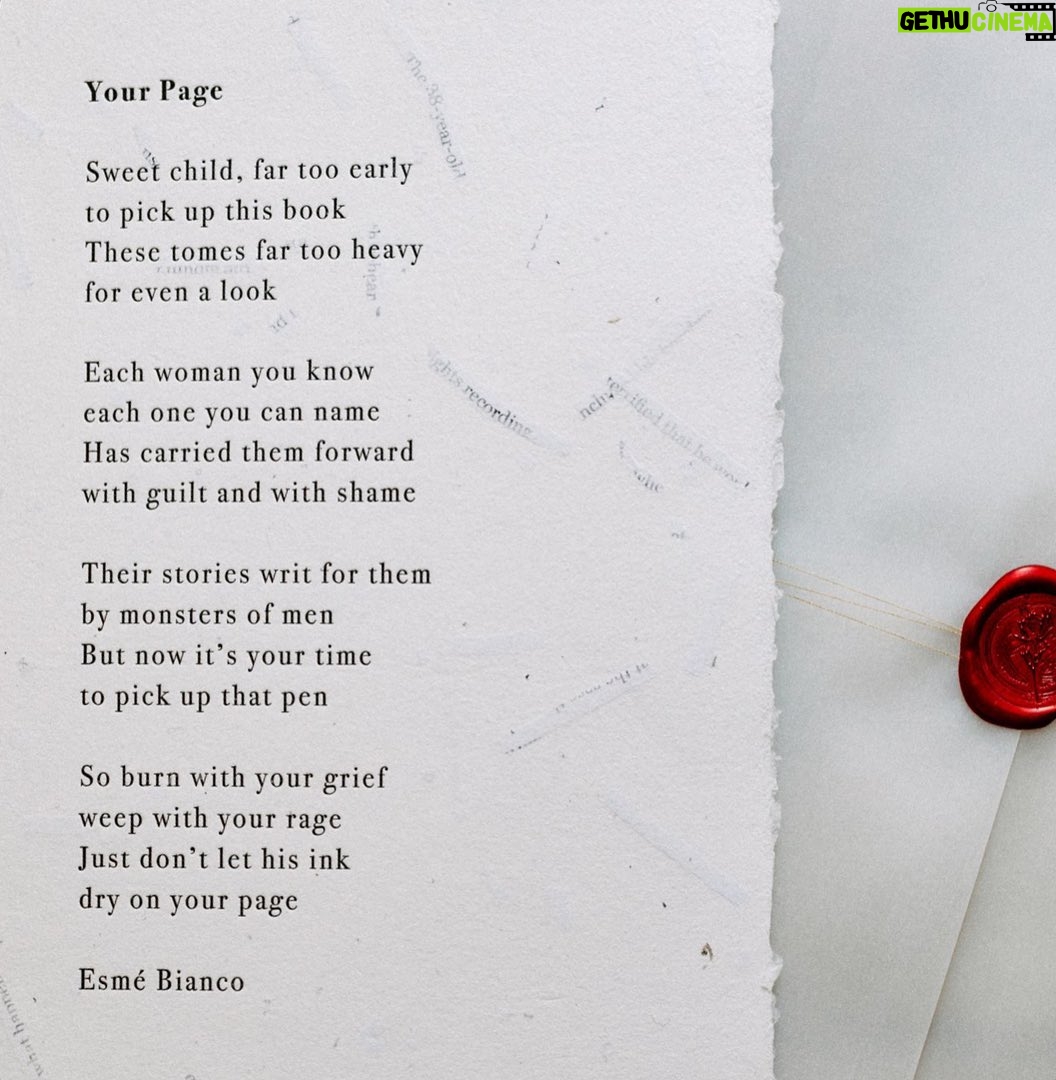 GETHU CINEMA
Your Page
Sweet child, far too early
to pick up this book
These tomes far too heavy
for even a look
Each woman you know
each one you can name
Has carried them forward
with guilt and with shame
Their stories writ for them
by monsters of men
But now it’s your time
to pick up that pen
So burn with your grief
weep with your rage
Just don’t let his ink
dry on your page
Esmé Bianco
The 38-year-old
hear
recording
that he